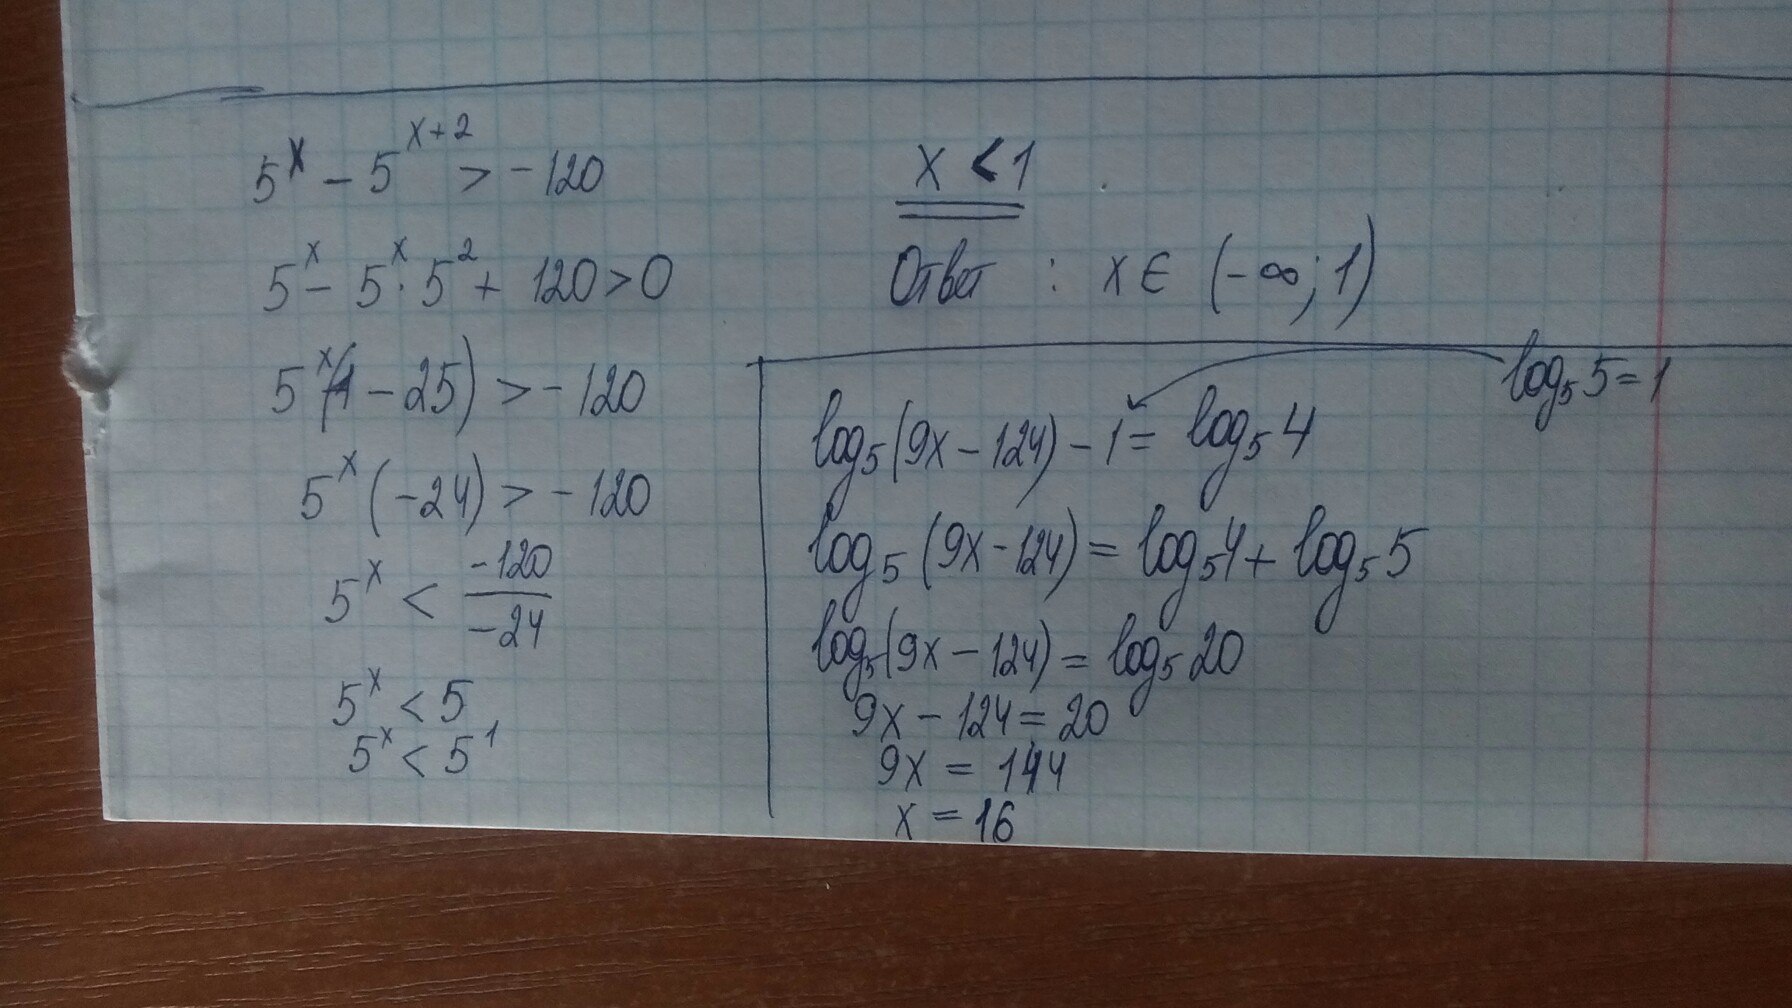 5^x - 5^(x+2) > -120
5^x - 5^x · 5^2 + 120 > 0
5^x(1 - 25) > -120
5^x (-24) > -120
5^x < -120/-24
5^x < 5
5^x < 5^1
x < 1
Ответ : x ∈ (-∞; 1)
log₅5 = 1
log₅(9x - 124) - 1 = log₅4
log₅(9x - 124) = log₅4 + log₅5
log₅(9x - 124) = log₅20
9x - 124 = 20
9x = 144
x = 16